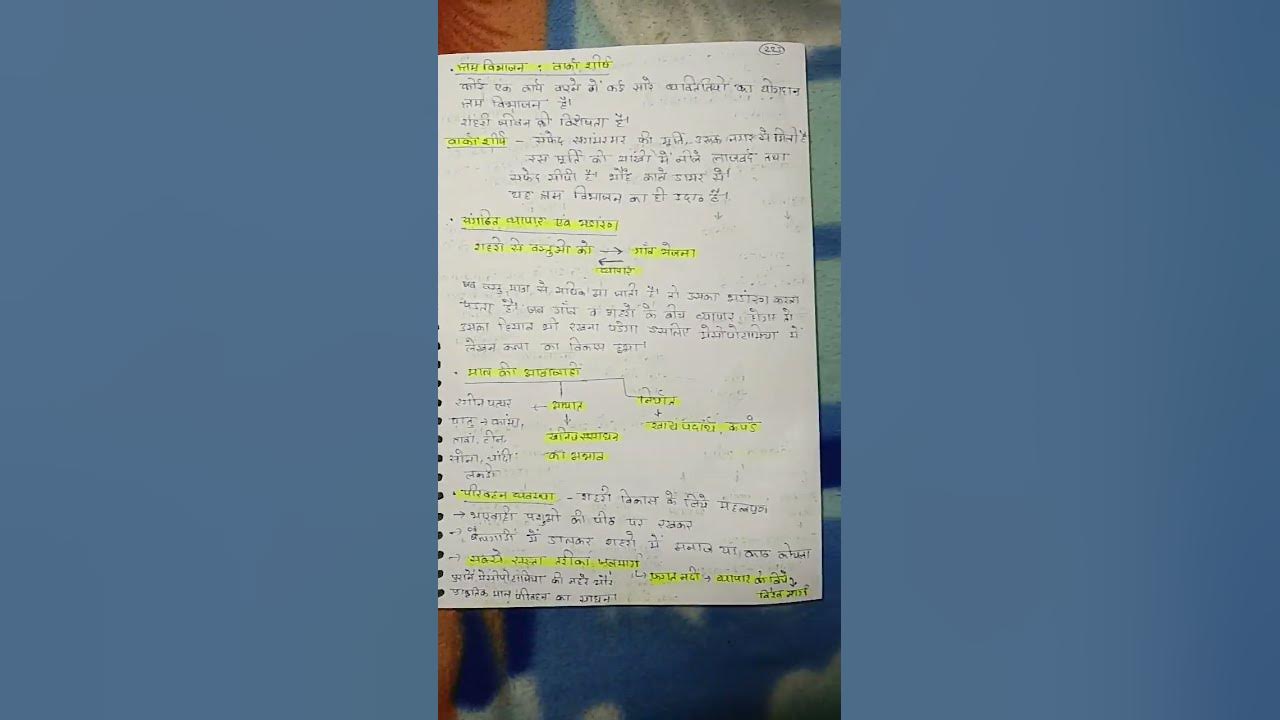 223
• श्रम विभाजन : वार्का शीर्ष
कोई एक कार्य करने में कई सारे व्यक्तितियों का योगदान
श्रम विभाजन है।
शहरी जीवन की विशेषता है।
वार्का शीर्ष – सफेद संगमरमर की मूर्ति, उरूक नगर से मिली है
इस मूर्ति की आंखो में नीले लाजवर्द तथा
सफेद सीपी है। भौंहे काले डामर से।
यह श्रम विभाजन का ही उदा० है।
• संगठित व्यापार एवं भडांरण
शहरो से वस्तुओ को → गाँव भेजना
← व्यापार
जब वस्तु मात्रा से अधिक आ जाती है। तो उसका भडांरण करना
पड़ता है। जब गाँव व शहरो के बीच व्यापार होगा तो
उसका हिसाब भी रखना पडेगा इसलिए मेसोपोटामिया में
लेखन कला का विकास हुआ।
• माल की आवाजाही
रंगीन पत्थर ← आयात निर्यात
धातु → कांसा, ↓ खाद्य पदार्थ, कपडे
तांबा, टीन, खनिज संसाधन
सोना, चांदी का अभाव
लकडी
• परिवहन व्यवस्था – शहरी विकास के लिये महत्वपूर्ण
→ भारवाही पशुओ की पीठ पर रखकर
→ बैलगाडी में डालकर शहरो में अनाज या काठ कोयला
→ सबसे सस्ता तरीका जलमार्ग
↳ फरात नदी → व्यापार के लिये
पुराने मेसोपोटामिया की नहरे और विश्व मार्ग
प्राकृतिक माल परिवहन का साधन।